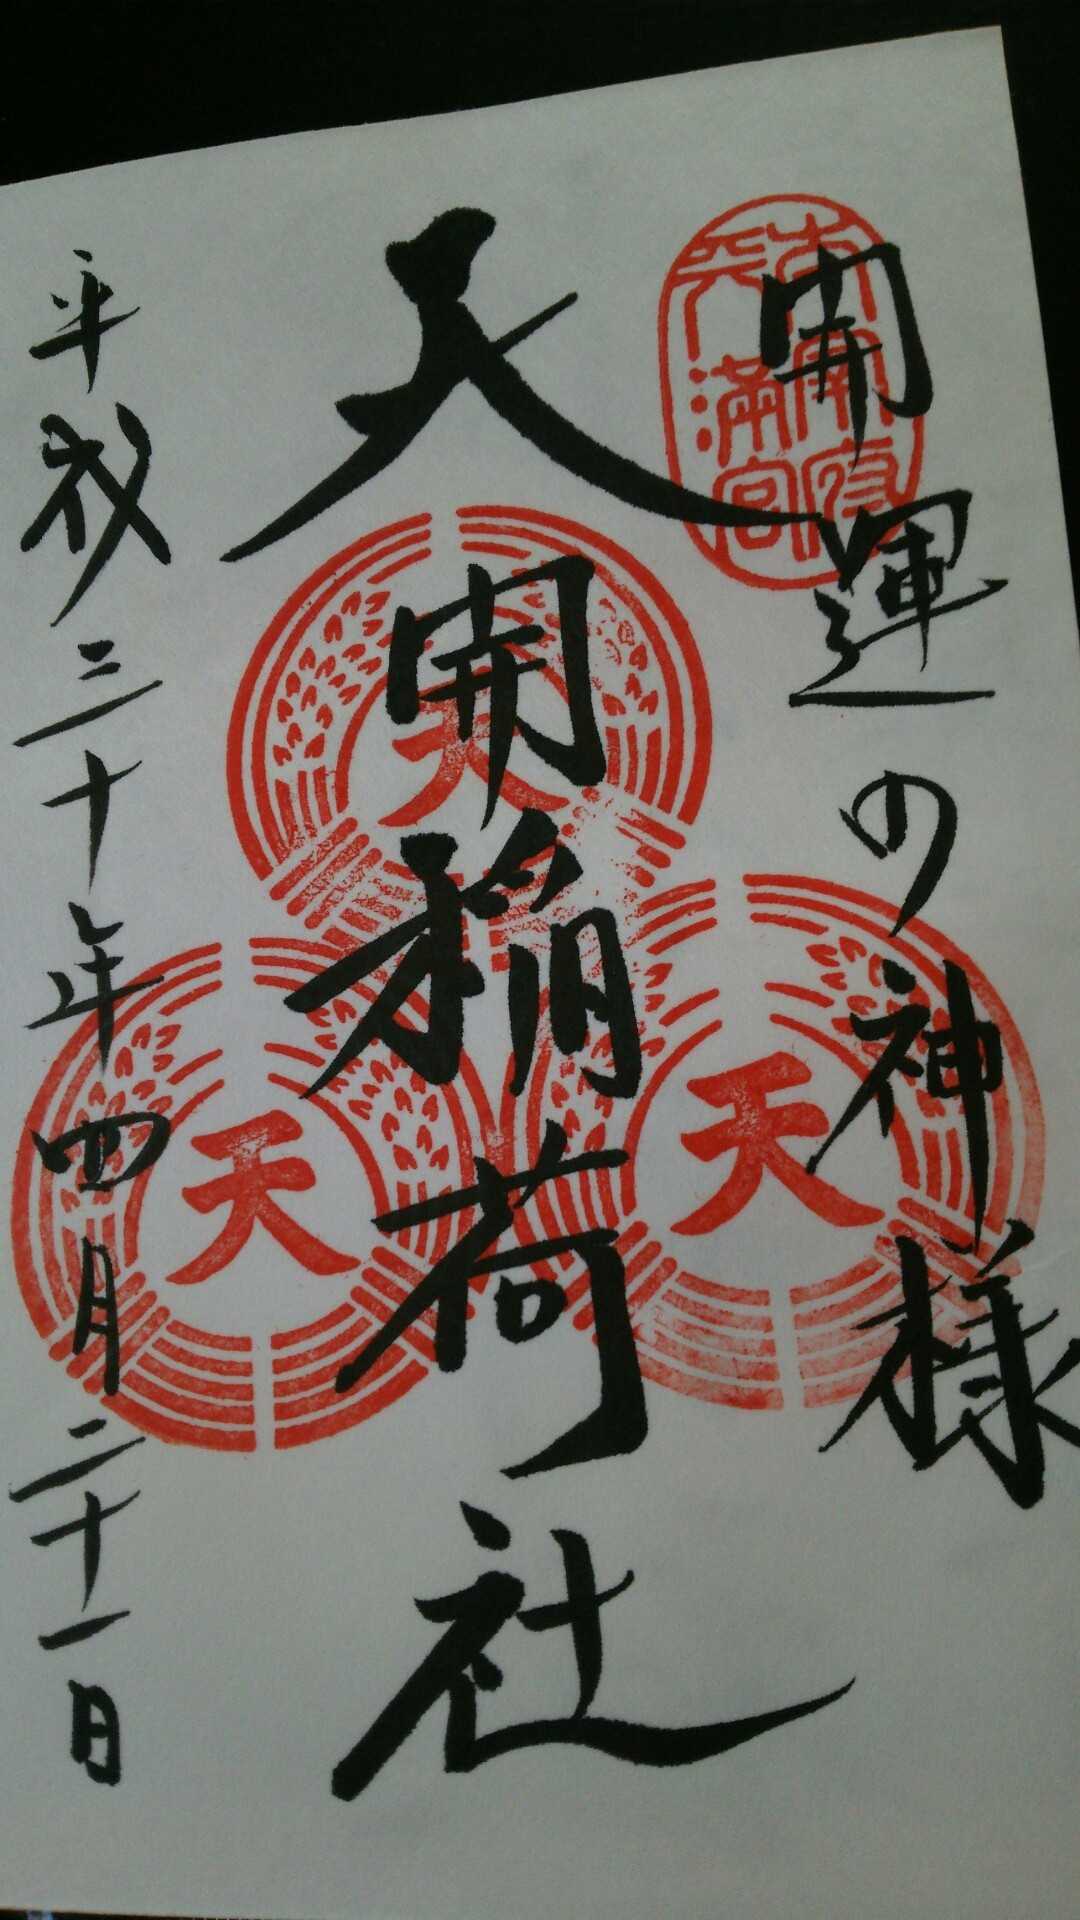 開運の神様
太宰府
天滿宮
天開稲荷社
天
天
天
平成三十年四月二十一日